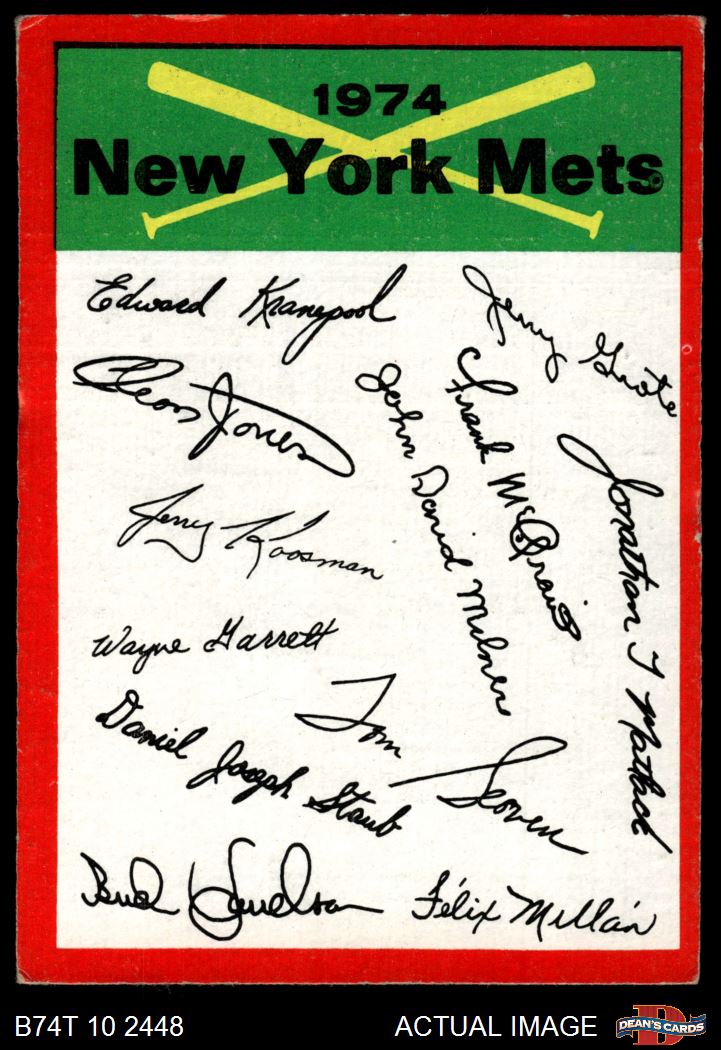 1974
New York Mets
Edward Kranepool
Jerry Grote
Cleon Jones
John David Milner
Frank McGraw
Jonathan T Matlack
Jerry Koosman
Wayne Garrett
Tom Seaver
Daniel Joseph Staub
Bud Harrelson
Félix Millán
B74T 10 2448
ACTUAL IMAGE
D
DEAN'S CARDS